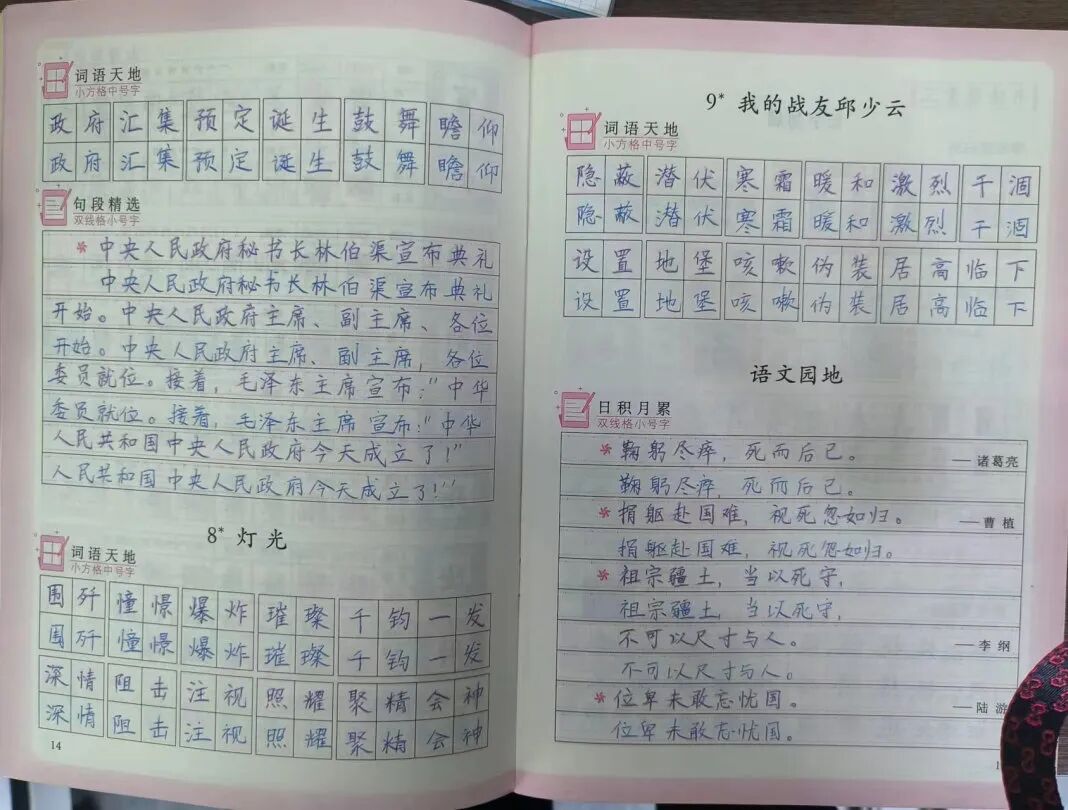 词语天地
小方格中号字
政府 汇集 预定 诞生 鼓舞 瞻仰
政府 汇集 预定 诞生 鼓舞 瞻仰
句段精选
双线格小号字
中央人民政府秘书长林伯渠宣布典礼
中央人民政府秘书长林伯渠宣布典礼
开始。中央人民政府主席、副主席、各位
开始。中央人民政府主席、副主席,各位
委员就位。接着,毛泽东主席宣布:“中华
委员就位。接着,毛泽东主席宣布:“中华
人民共和国中央人民政府今天成立了!”
人民共和国中央人民政府今天成立了!”
8* 灯光
词语天地
小方格中号字
围歼 憧憬 爆炸 璀璨 千钧一发
围歼 憧憬 爆炸 璀璨 千钧一发
深情 阻击 注视 照耀 聚精会神
深情 阻击 注视 照耀 聚精会神
14
9* 我的战友邱少云
词语天地
小方格中号字
隐蔽 潜伏 寒霜 暖和 激烈 干涸
隐蔽 潜伏 寒霜 暖和 激烈 干涸
设置 地堡 咳嗽 伪装 居高临下
设置 地堡 咳嗽 伪装 居高临下
语文园地
日积月累
双线格小号字
鞠躬尽瘁,死而后已。 ——诸葛亮
鞠躬尽瘁,死而后已。
捐躯赴国难,视死忽如归。 ——曹植
捐躯赴国难,视死忽如归。
祖宗疆土,当以死守,
祖宗疆土,当以死守,
不可以尺寸与人。 ——李纲
不可以尺寸与人。
位卑未敢忘忧国。 ——陆游
位卑未敢忘忧国。